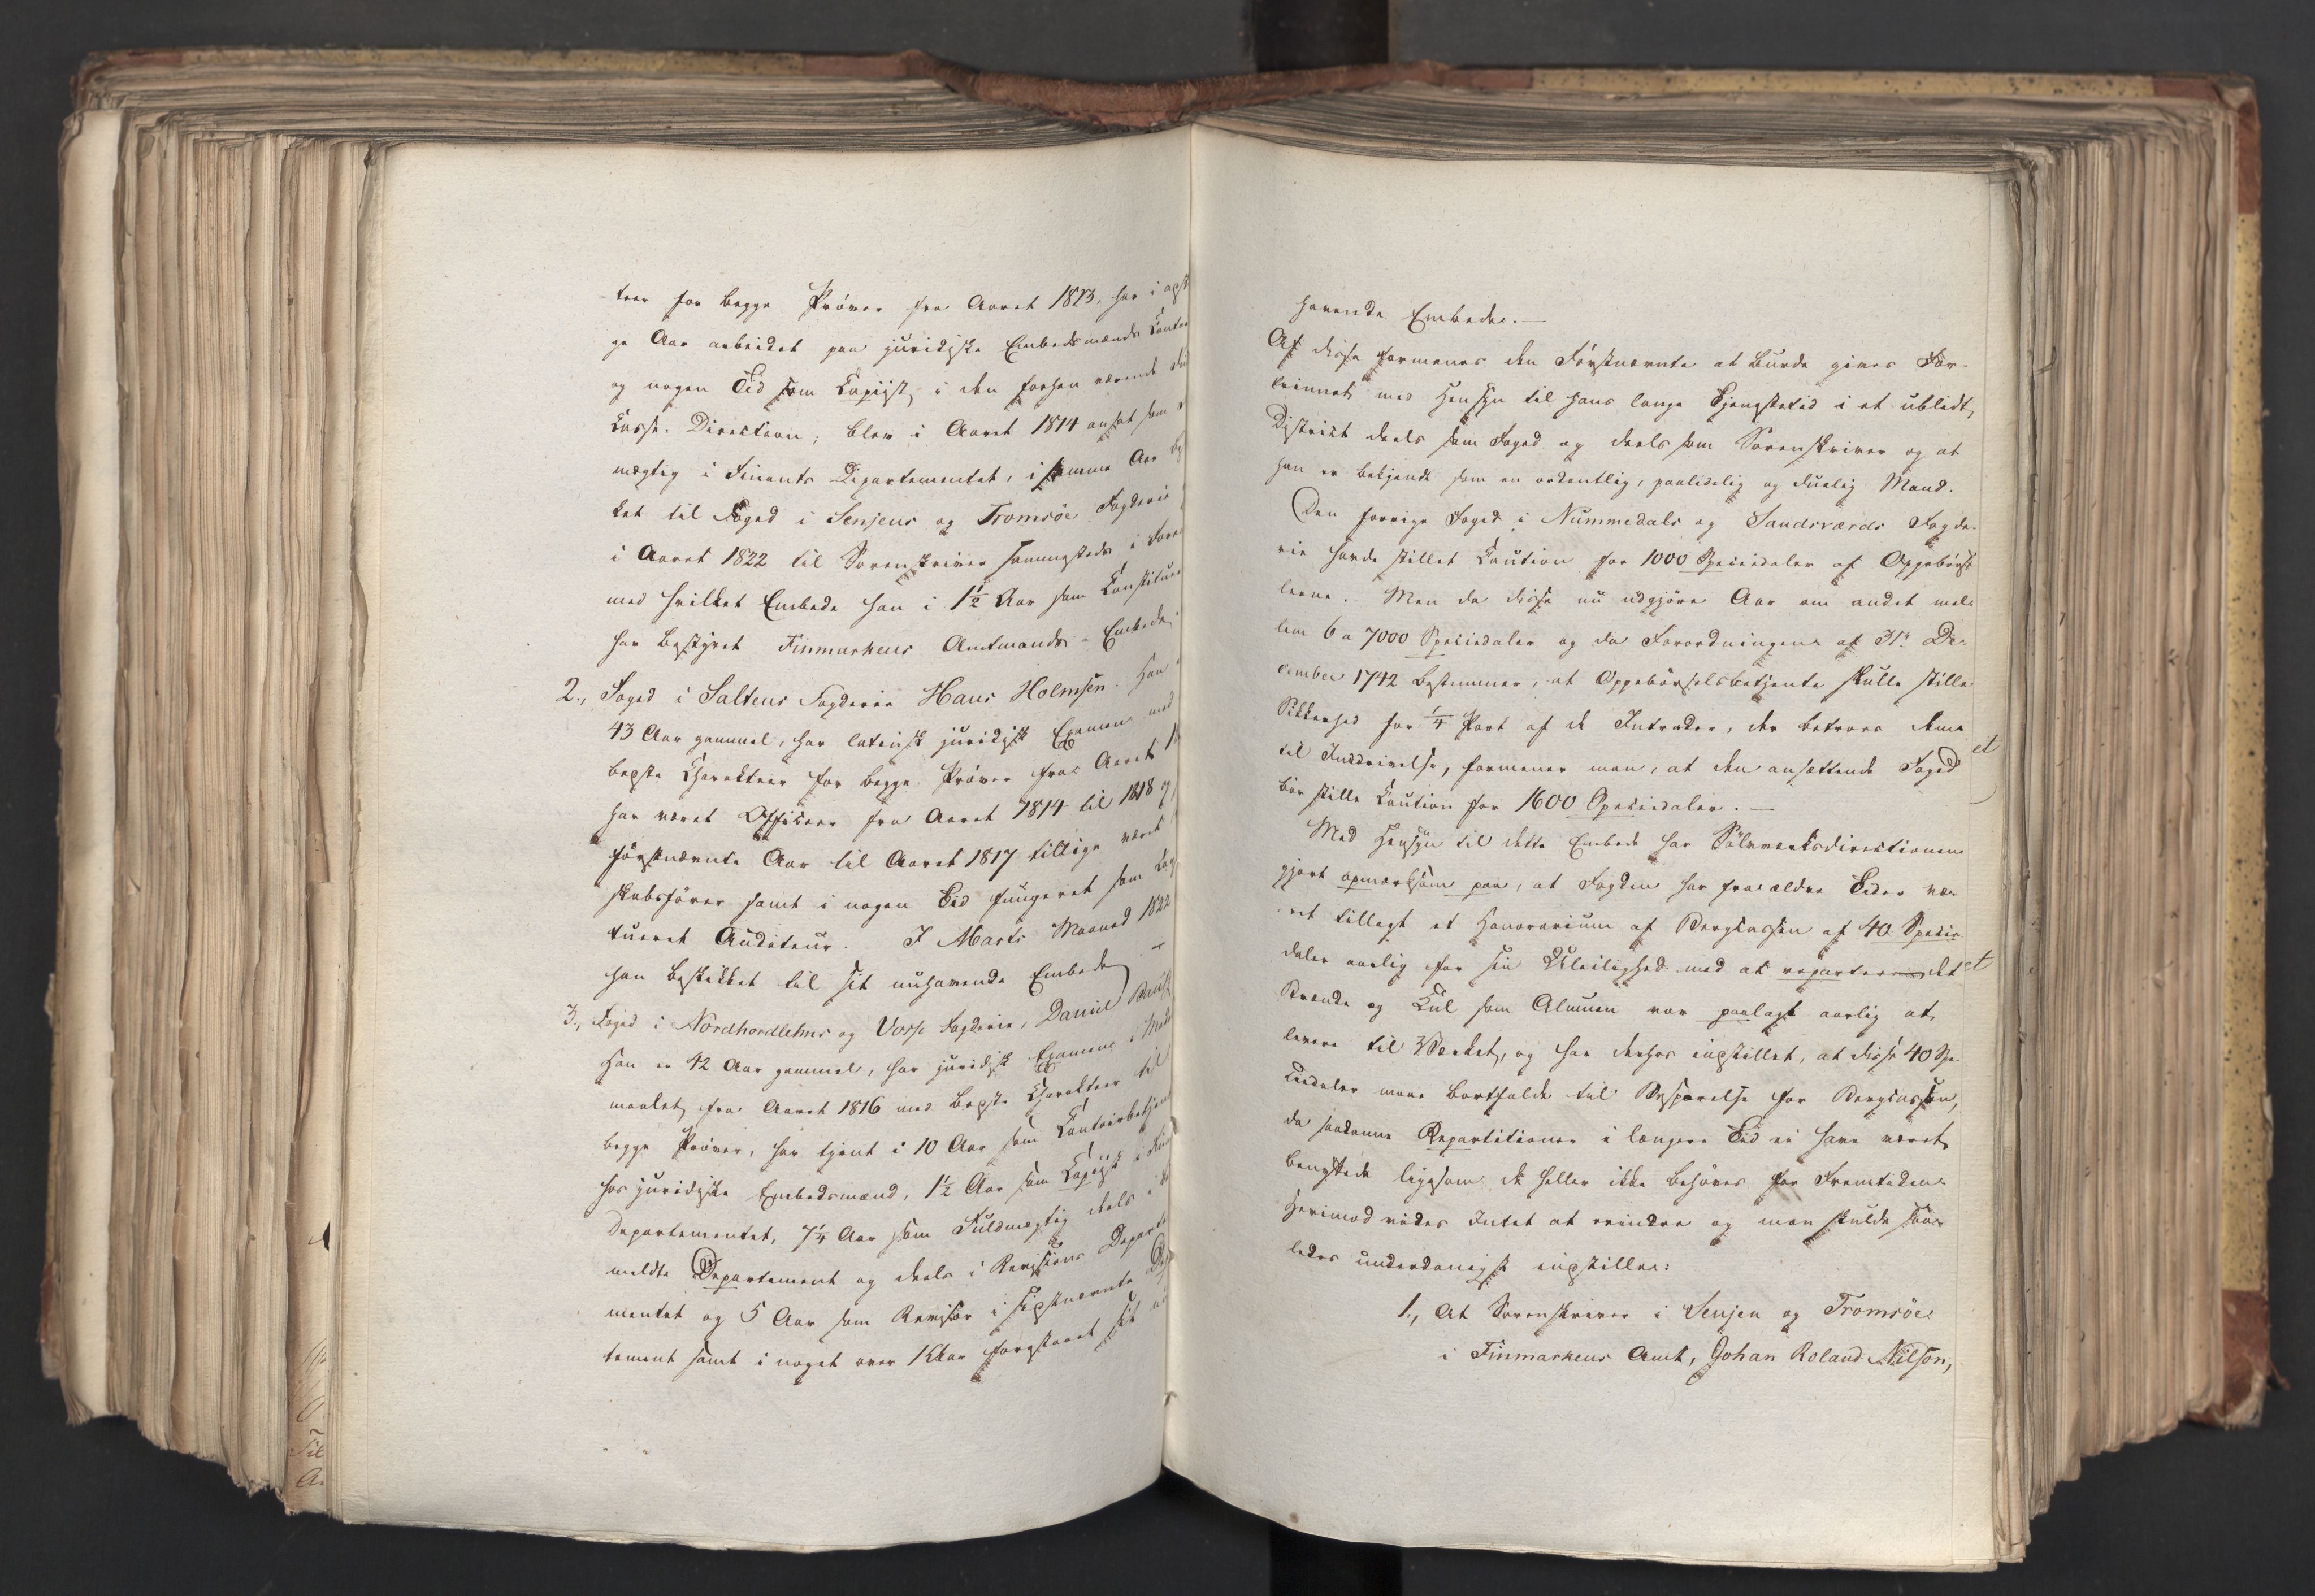 teer for begge Prøver fra Aaret 1813, har i
ge Aar arbeidet paa juridiske Embedsmænds Contoi
og nogen Tid som Copiist i den forhen værende
Casse-Direction; blev i Aaret 1814 ansat som
mægtig i Finants Departementet, i samme Aar
ket til Foged i Senjens og Tromsöe Fogderie
i Aaret 1822 til Sorenskriver sammesteds i
med hvilket Embede han i 1½ Aar som Constitueret
har bestyret Finmarkens Amtmands-Embede.
2., Foged i Saltens Fogderie Hans Holmsen. Han
43 Aar gammel, har latinsk juridisk Examen med
bedste Charakteer for begge Prøver fra Aaret
har været Officeer fra Aaret 1814 til 1818
förstnævnte Aar til Aaret 1817 tillige været
skabsfører samt i nogen Tid fungeret som
tueret Auditeur. I Marts Maaned 1822
han beskikket til sit nuhavende Embede. —
3., Foged i Nordhordlehns og Vosse Fogderie, Daniel
Han er 42 Aar gammel, har juridisk Examen i
maalet fra Aaret 1816 med bedste Charakteer til
begge Prøver, har tjent i 10 Aar som Contoirbetjent
hos juridiske Embedsmænd, 1½ Aar som Copiist i
Departementet, 7¼ Aar som Fuldmægtig deels i
meldte Departement og deels i Revisions Departe
mentet og 5 Aar som Revisor i sidstnævnte
tement samt i noget over 1 Aar forestaaet sit
havende Embede. —
Af disse formenes den Förstnævnte at burde gives For-
trinnet med Hensyn til hans lange Tjenestetid i et ublidt
District deels som Foged og deels som Sorenskriver og at
han er bekjendt som en ordentlig, paalidelig og duelig Mand.
Den forrige Foged i Nummedals og Sandsværds Fogde-
rie havde stillet Caution for 1000 Speciedaler af Oppebørs
lerne. Men da disse nu udgjöre Aar om andet mel-
lem 6 a 7000 Speciedaler og da Forordningen af 31te De-
cember 1742 bestemmer, at Oppebörselsbetjente skulle stille
Sikkerhed for ¼ Part af de Intrader, der betroes dem
til Inddrivelse, formener man, at den ansættende Foged
bör stille Caution for 1600 Speciedaler. —
Med Hensyn til dette Embede har Sölvværksdirectionen
gjort opmærksom paa, at Fogden har fra ældre Tider væ-
ret tillagt et Honorarium af Bergcassen af 40 Specie
daler aarlig for sin Uleilighed med at repartere det
Brænde og Kul som Almuen var paalagt aarlig at
levere til Værket, og har derhos indstillet, at disse 40 Spe-
ciedaler maae bortfalde til Besparelse for Bergcassen,
da saadanne Repartitioner i længere Tid ei have været
benyttede ligesom de heller ikke behöves for Fremtiden.
Herimod vides Intet at erindre og man skulde saa-
ledes underdanigst indstille:
1., At Sorenskriver i Senjen og Tromsöe
i Finmarkens Amt, Johan Roland Nilson,